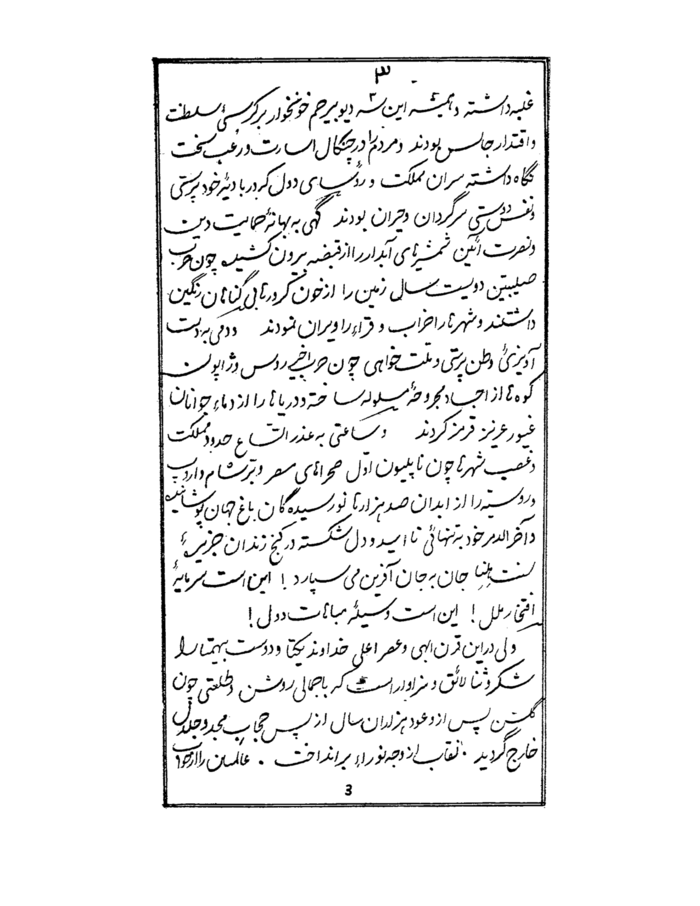 ٣
غلبه داشته و همیشه این سه دیو بیرحم خونخوار بر کرسیٔ سلطنت
و اقتدار جالس بودند و مردم را در چنگال اسارت و رعب سخت
نگاه داشته سران مملکت و رؤسای دول که در بادیهٔ خود پرستی
و نفس دوستی سرگردان و حیران بودند گهی به بهانهٔ حمایت دین
و نصرت آئین شمشیرهای آبدار را از قبضه برون کشیده چون حرب
صلیبین دویست سال زمین را از خون کرورها بی گناهان رنگین
داشتند و شهرها را خراب و قراء را ویران نمودند و دمی به دست
آویزیٔ وطن پرستی و ملت خواهی چون حرب اخیر روس و ژاپون
کوه ها از اجساد مجروحهٔ ساخته و دریاها را از دماء جوانان
غیور عزیز قرمز کردند و ساعتی به عذر اتساع حدود مملکت
و غصب شهرها چون ناپلیون اوّل صحراهای مصر و بر شام و اروپ
و روسیه را از ابدان صد هزارها نورسیده گان باغ جهان پوشانیده
و آخر الامر خود به تنهائی ناامید و دل شکسته در کنج زندان جزیرهٔ
سنت هلنا جان به جان آفرین می سپارد ! این است سرمایهٔ
افتخار ملل ! این است وسیلهٔ مباهات دول !
ولی در این قرن الهی و عصر اعلی خداوند یکتا و دوست بیهمتا را
شکر و ثنا لائق و سزاوار است که با جمالی روشن و طلعتی چون
گلشن پس از وعود هزاران سال از پس حجاب مجد و جلال
خارج گردید . نقاب از وجه نوراء برانداخت . عالمیان را از خواب
3